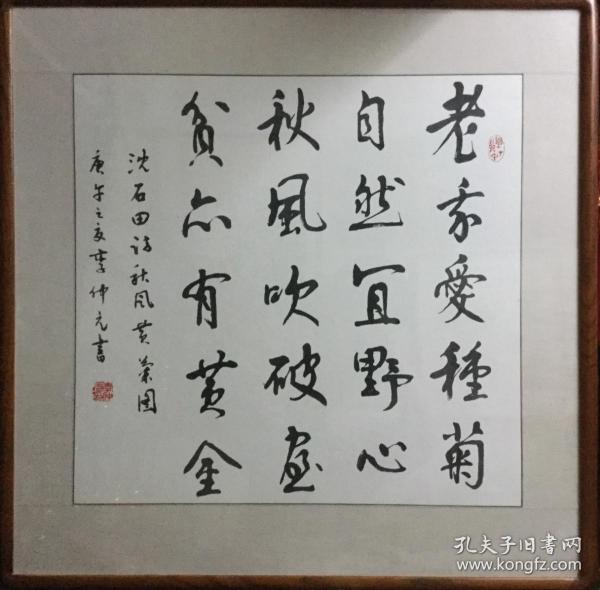 老我愛種菊
自然宜野心
秋風吹破屋
貧亦有黄金
沈石田詩秋风黄菊图
庚午之夏李仲元書
孔夫子旧書网
www.kongfz.com